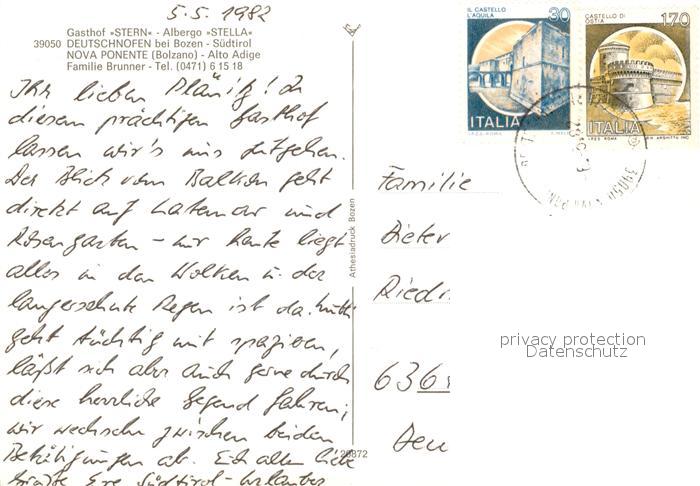 5.5.1982
Gasthof »STERN« - Albergo »STELLA«
39050 DEUTSCHNOFEN bei Bozen - Südtirol
NOVA PONENTE (Bolzano) - Alto Adige
Familie Brunner - Tel. (0471) 6 15 18
Ihr lieben ! In
diesem prächtigen Gasthof
lassen wir's uns gutgehen.
Der Blick vom Balkon geht
direkt auf Latemar und
Rosengarten – nur heute liegt
alles in den Wolken u. der
langersehnte Regen ist da. Mutti
geht tüchtig mit spazieren,
läßt sich aber auch gerne durch
diese herrliche Gegend fahren;
wir wechseln zwischen beiden
Betätigungen ab. Euch allen liebe
Grüße Eure Südtirol-Urlauber
Athesiadruck Bozen
20872
IL CASTELLO
L'AQUILA
30
ITALIA
CASTELLO DI
OSTIA
170
ITALIA
39050
Familie
Dieter
Riedr
636
Deu
privacy protection
Datenschutz